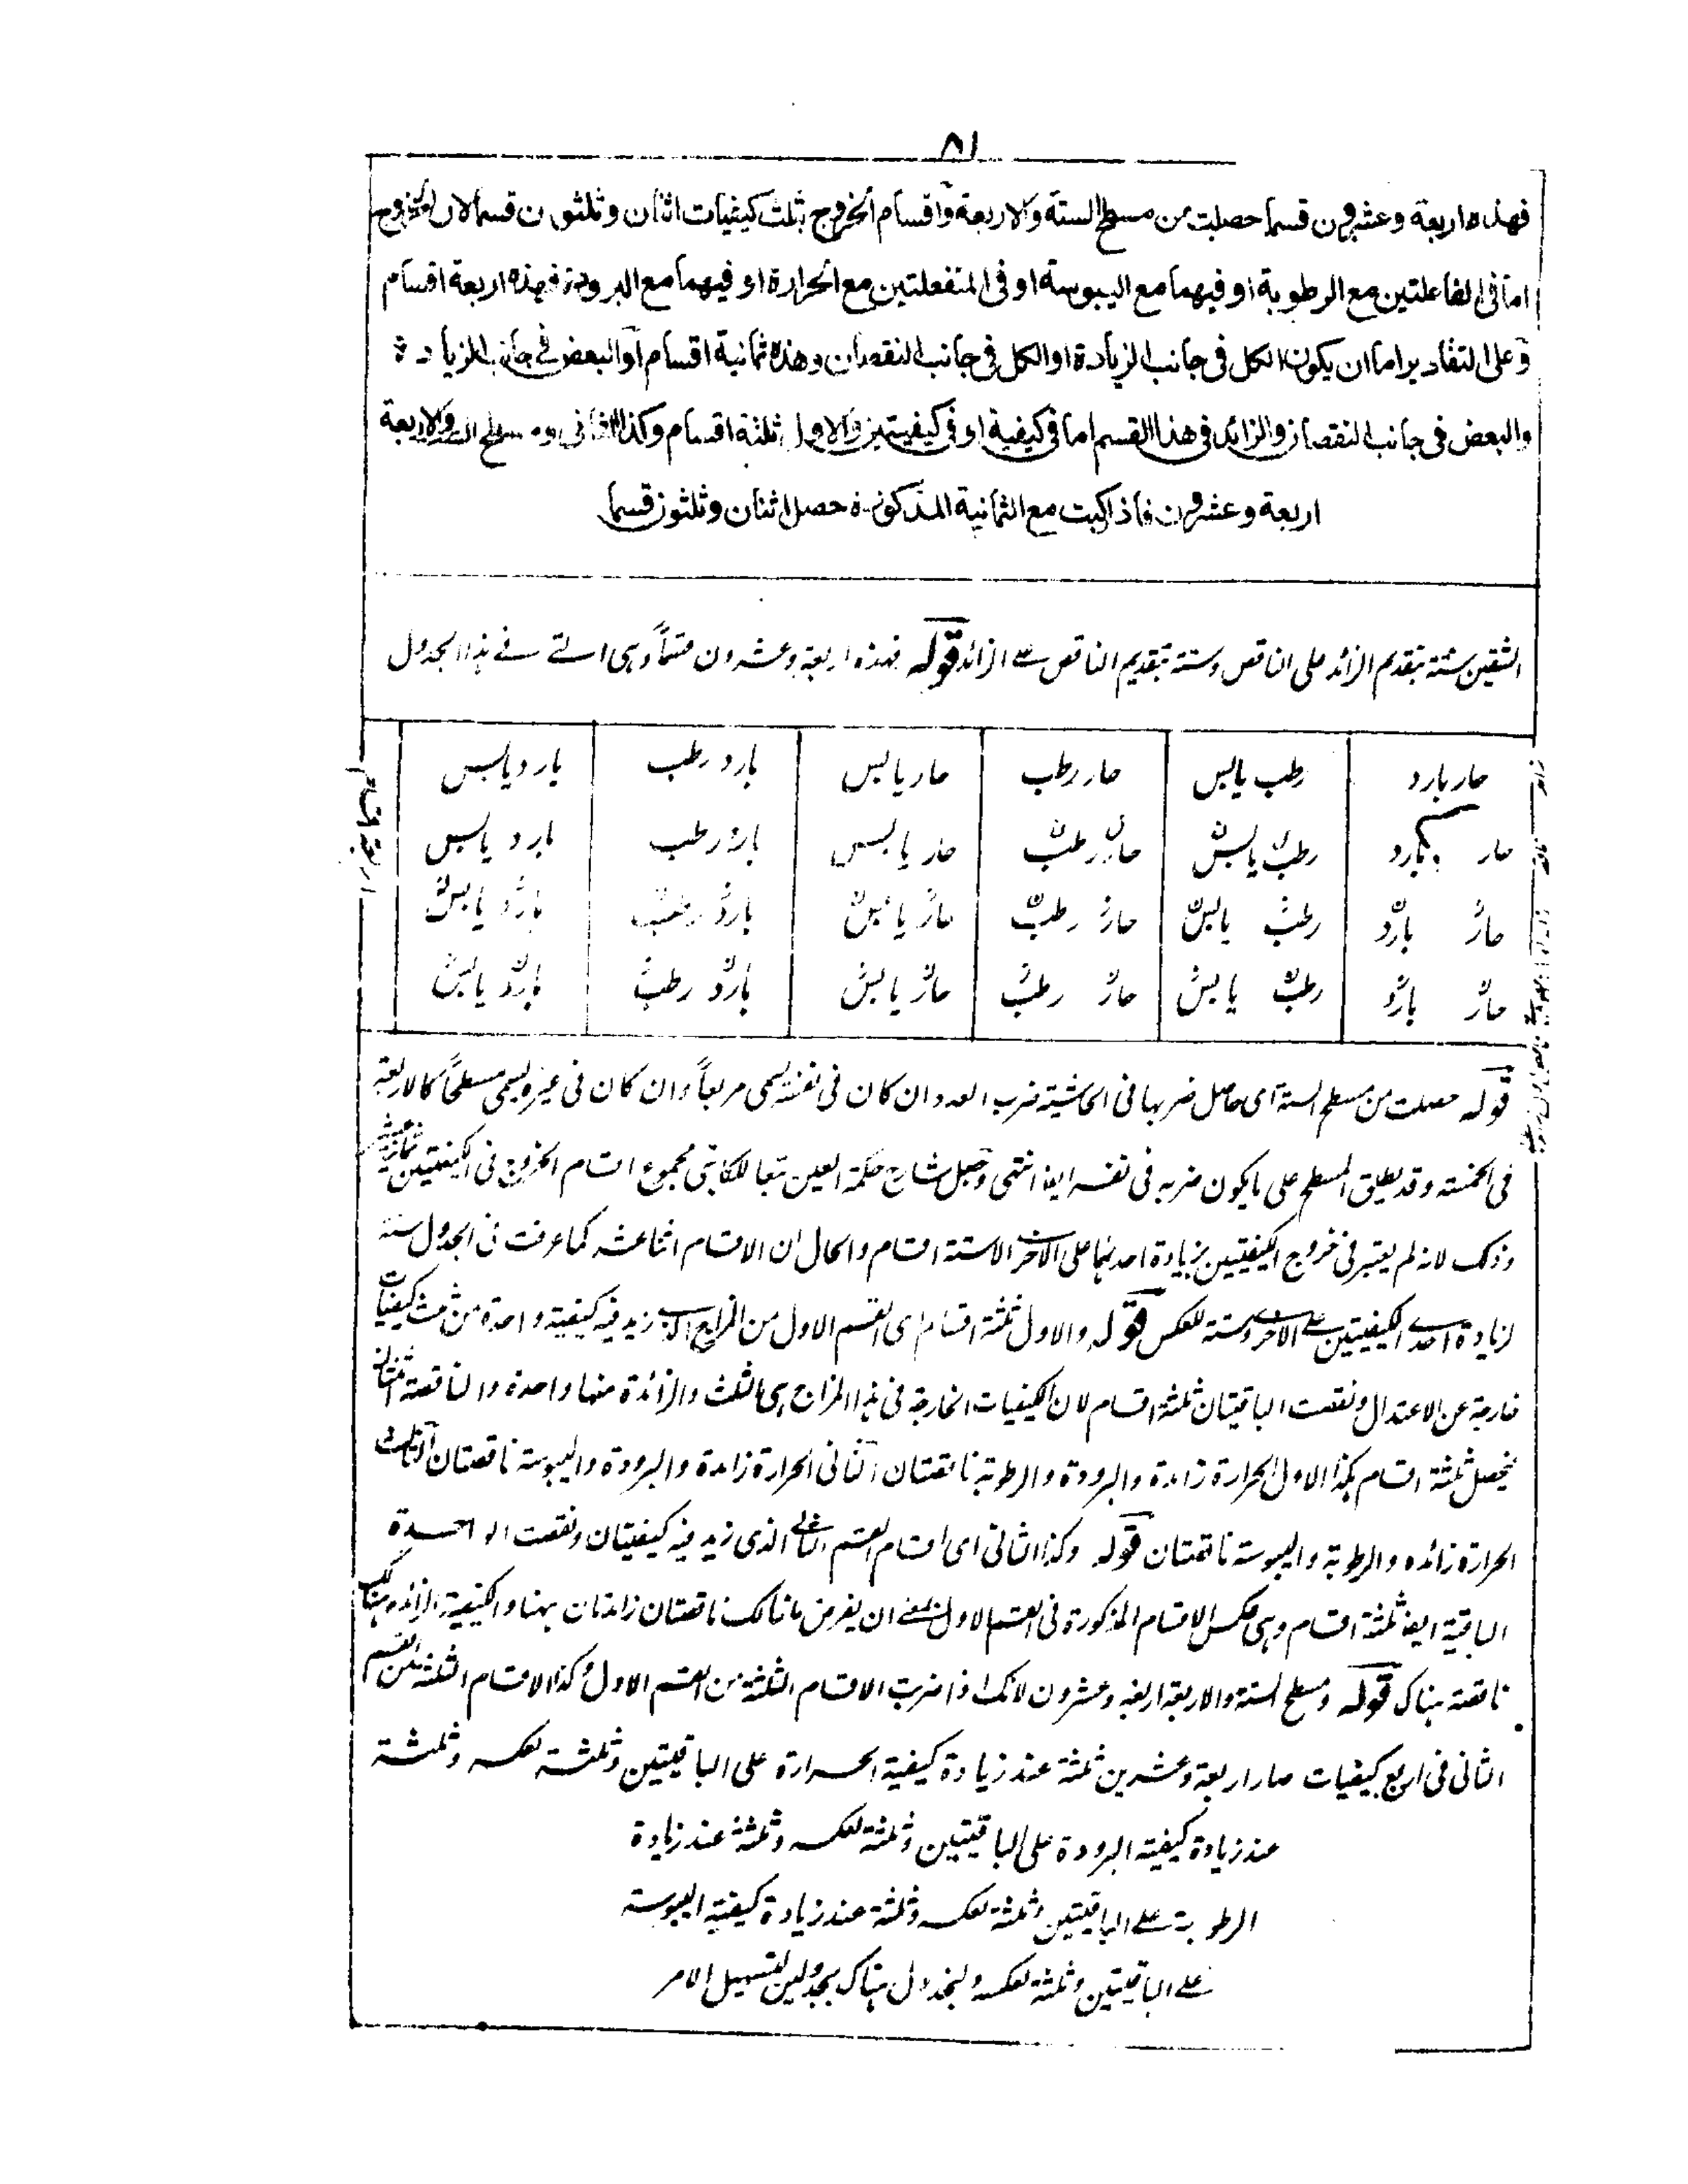 ٨١
فهذه اربعة وعشرون قسما حصلت من مسطح الستة والاربعة واقسام الخروج بثلث كيفيات اثنان وثلثون قسما لان الخروج
اما فى الفاعلتين مع الرطوبة او فيهما مع اليبوسة او فى المنفعلتين مع الحرارة او فيهما مع البرودة فهذه اربعة اقسام
وعلى التقادير اما ان يكون الكل فى جانب الزيادة او الكل فى جانب النقصان وهذه ثمانية اقسام او البعض فى جانب الزيادة
والبعض فى جانب النقصان والزائد فى هذا القسم اما فى كيفية او فى كيفيتين والاول ثلثة اقسام وكذا الثانى ومسطح الستة والاربعة
اربعة وعشرون فاذا كبت مع الثمانية المذكورة حصل اثنان وثلثون قسما
الشقين ستة بتقديم الزائد على الناقص وستة بتقديم الناقص على الزائد قوله فهذه اربعة وعشرون قسماً وهى التى فى هذا الجدول
حار بارد رطب يابس حار رطب حار يابس بارد رطب بارد يابس
حار بارد رطب يابس حار رطب حار يابس بارد رطب بارد يابس
حار بارد رطب يابس حار رطب حار يابس بارد رطب بارد يابس
حار بارد رطب يابس حار رطب حار يابس بارد رطب بارد يابس
قوله حصلت من مسطح الستة اى حاصل ضربها فى الحاشية ضرب العدد ان كان فى نفسه يسمى مربعاً وان كان فى غيره يسمى مسطحاً كالاربعة
فى الخمسة وقد يطلق المسطح على ما يكون ضربه فى نفسه ايضا انتهى وجعل شارح حكمة العين تبعا للكاتبى مجموع اقسام الخروج فى الكيفيتين ثمانية عشر
وذلك لانه لم يعتبر فى خروج الكيفيتين بزيادة احدهما على الاخرى الا ستة اقسام والحال ان الاقسام اثنا عشر كما عرفت فى الجدول ستة
لزيادة احدى الكيفيتين على الاخرى وستة لعكس قوله والاول ثلثة اقسام اى القسم الاول من المزاج الذى زيد فيه كيفية واحدة من ثلث كيفيات
خارجة عن الاعتدال ونقصت الباقيتان ثلثة اقسام لان الكيفيات الخارجة فى هذا المزاج هى الثلث والزائدة منها واحدة والناقصة اثنتان
فيحصل ثلثة اقسام هكذا الاول الحرارة زائدة والبرودة والرطوبة ناقصتان الثانى الحرارة زائدة والبرودة واليبوسة ناقصتان الثالث
الحرارة زائدة والرطوبة واليبوسة ناقصتان قوله وكذا الثانى اى اقسام القسم الثانى الذى زيد فيه كيفيتان ونقصت الواحدة
الباقية ايضا ثلثة اقسام وهى عكس الاقسام المذكورة فى القسم الاول اعنى ان يفرض ما هنالك ناقصتان زائدتان ههنا والكيفية الزائدة هنالك
ناقصة هناك قوله ومسطح الستة والاربعة اربعة وعشرون لانك اذا ضربت الاقسام الثلثة من القسم الاول وكذا الاقسام الثلثة من القسم
الثانى فى اربع كيفيات صار اربعة وعشرين ثلثة عند زيادة كيفية الحرارة على الباقيتين وثلثة لعكسه وثلثة
عند زيادة كيفية البرودة على الباقيتين وثلثة لعكسه وثلثة عند زيادة
الرطوبة على الباقيتين وثلثة لعكسه وثلثة عند زيادة كيفية اليبوسة
على الباقيتين وثلثة لعكسه ولنجدول هناك بجدولين لتسهيل الامر